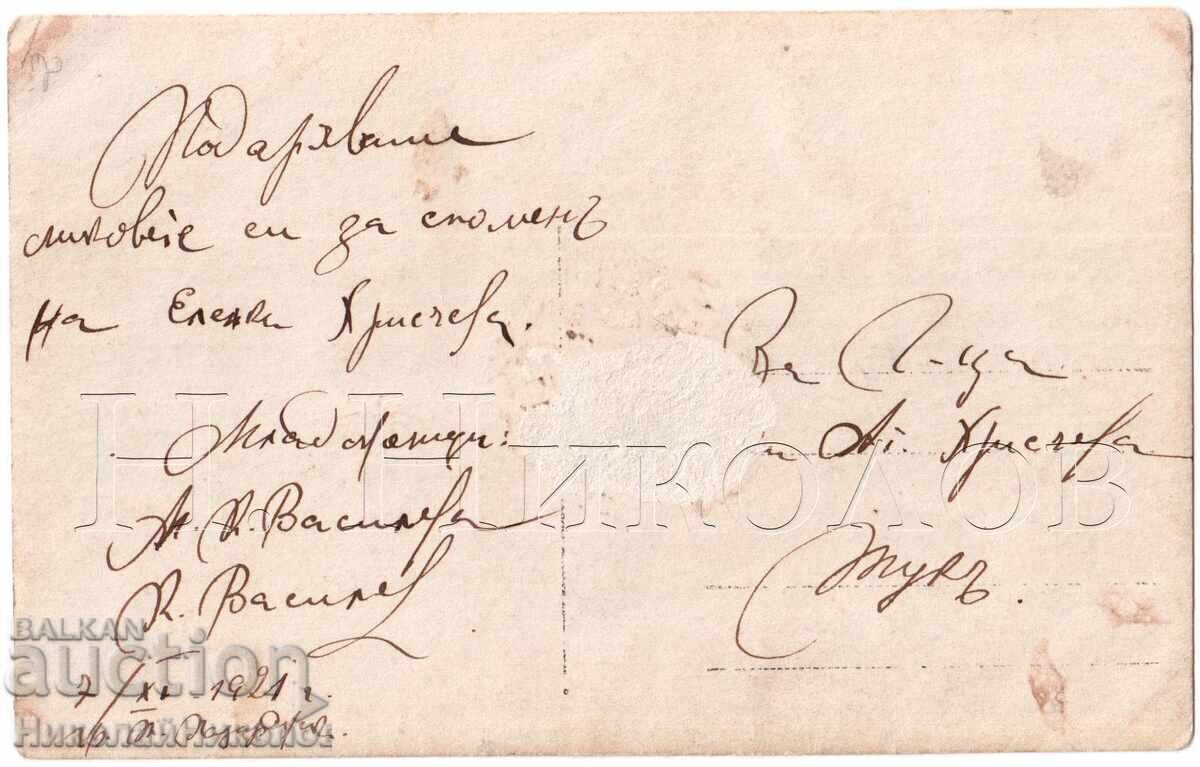 Подаряваме
ликовете си за споменъ
на Еленка Христева.
Младоженци:
К. Василева
К. Василев
7/XI 1921 г.
гр. Т. Пазарджик
За Г-ца
Христева
Тукъ.
Н. Николов
BALKAN
auction
НиколайНиколов